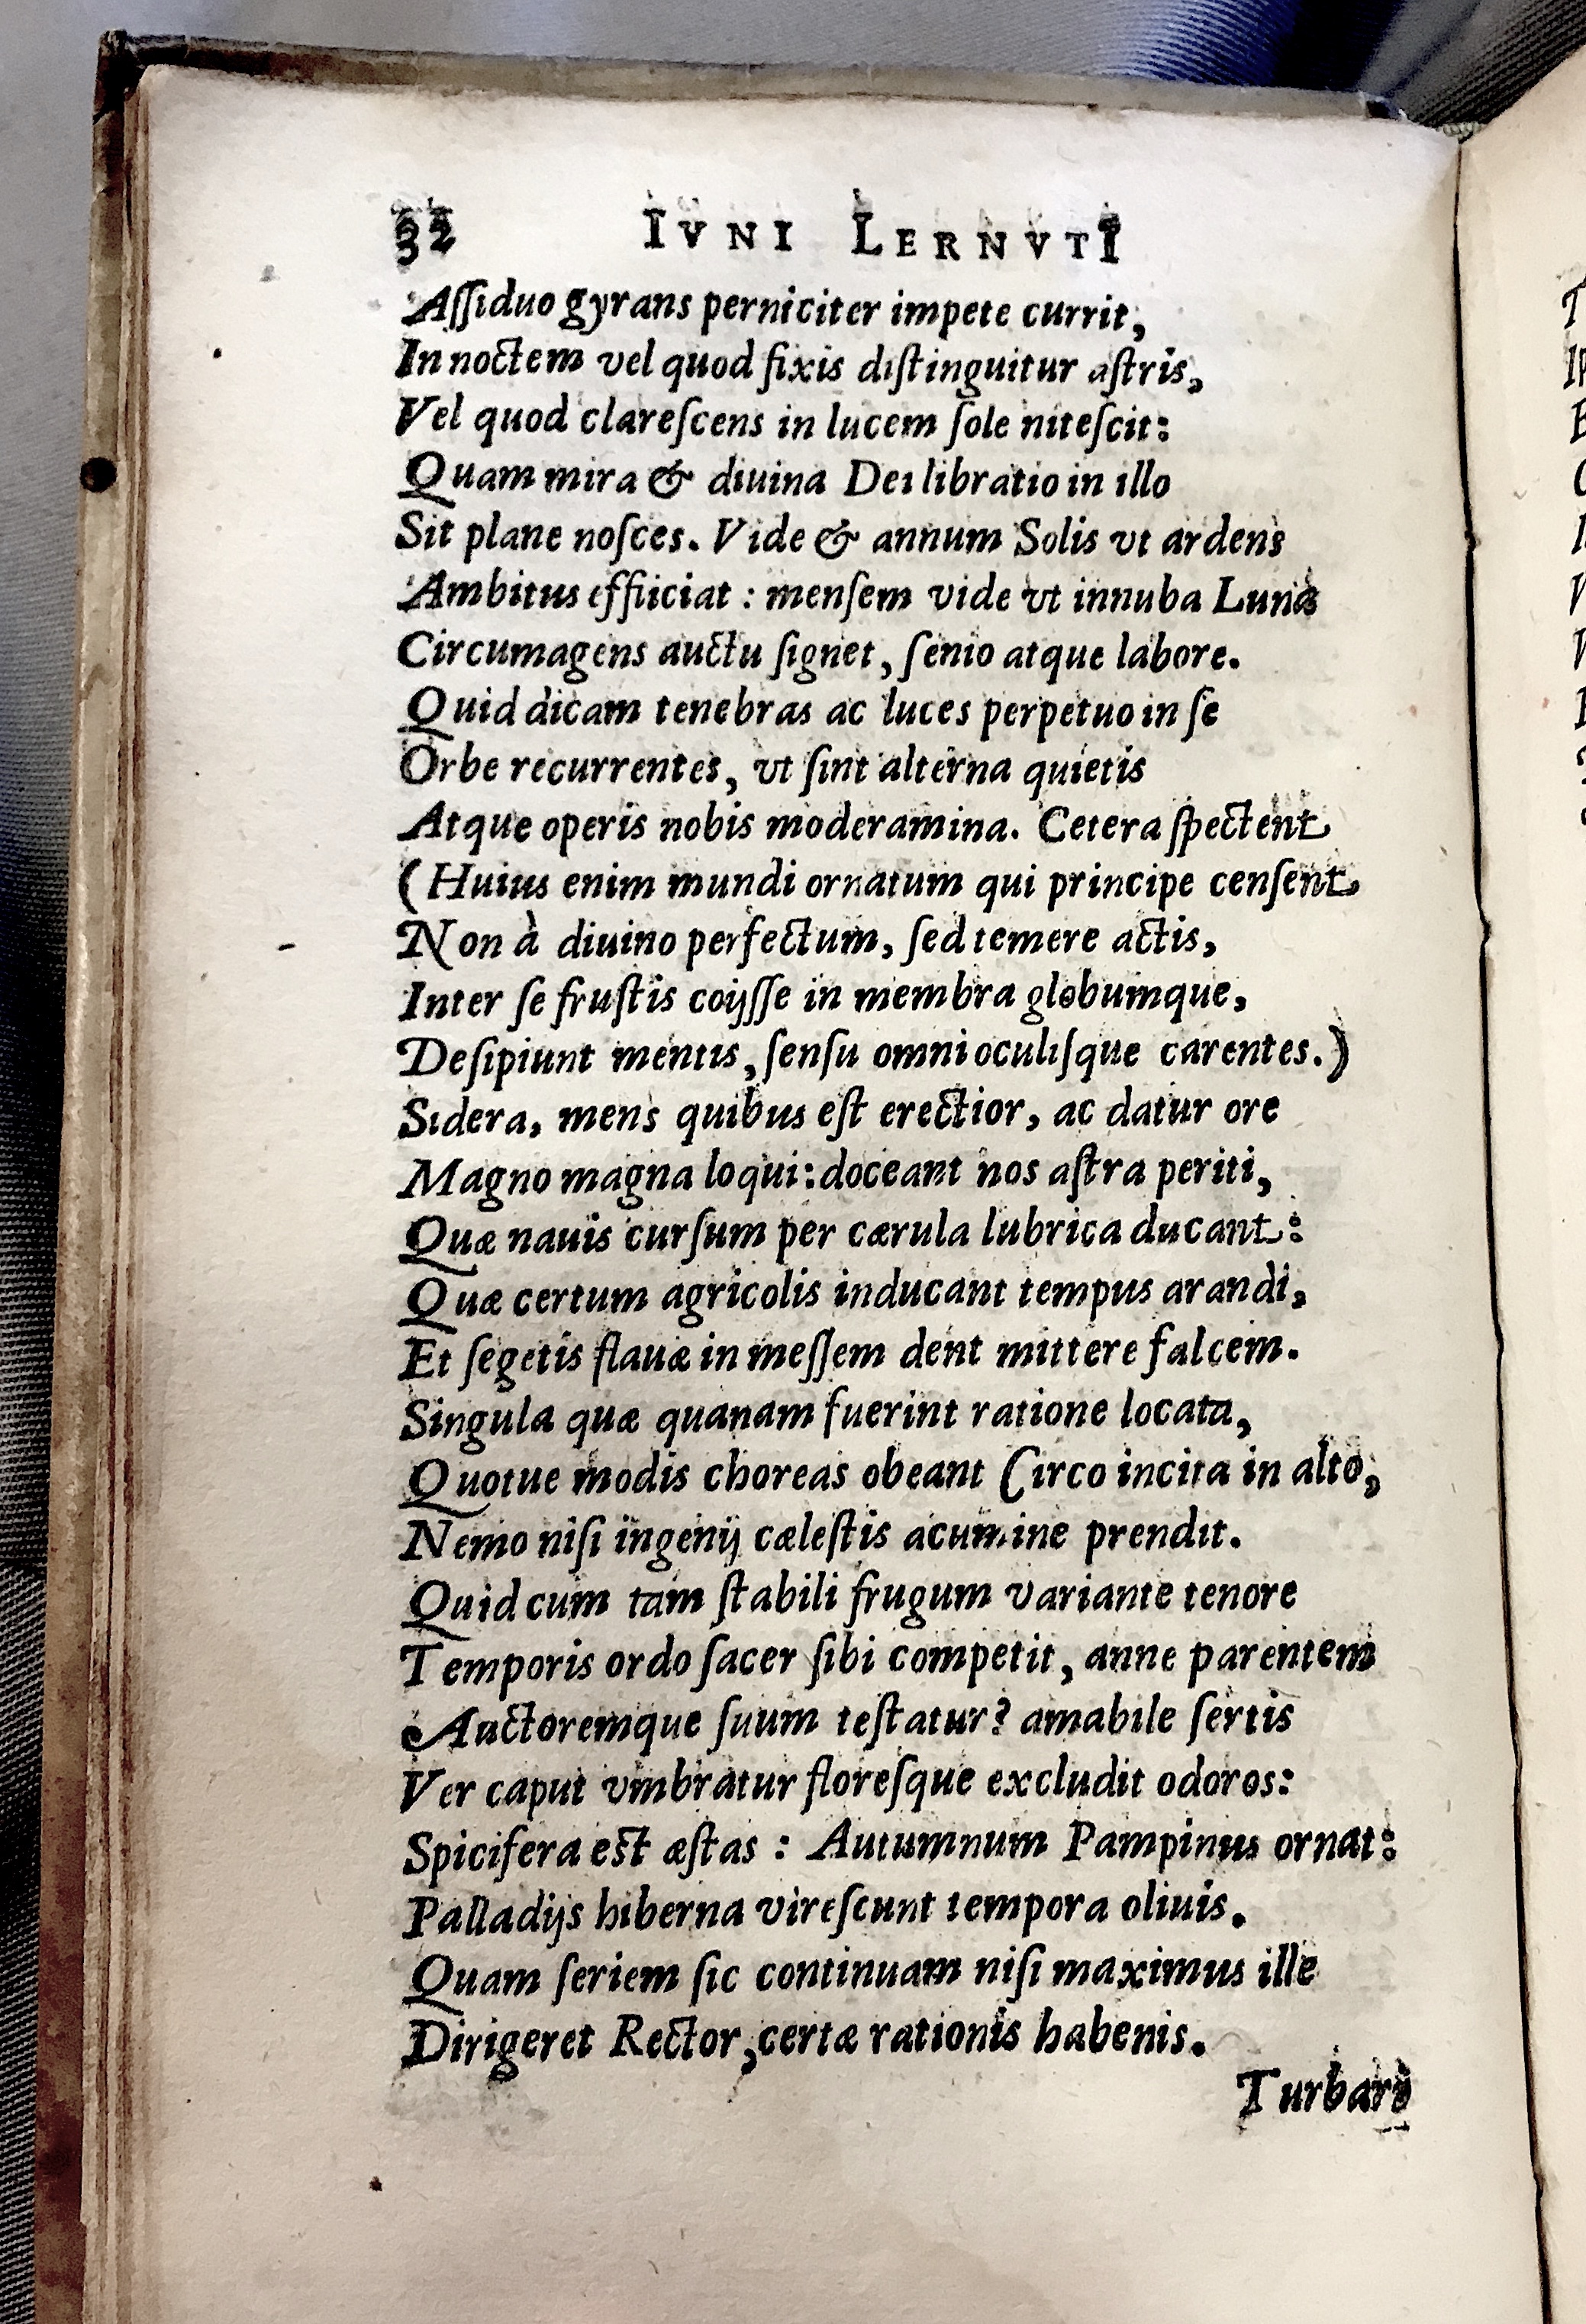 32 IVNI LERNVTI
Aſſiduo gyrans perniciter impete currit,
In noctem vel quod fixis diſtinguitur aſtris,
Vel quod clareſcens in lucem ſole niteſcit:
Quam mira & diuina Dei libratio in illo
Sit plane noſces. Vide & annum Solis vt ardens
Ambitus efficiat : menſem vide vt innuba Luna
Circumagens auctu ſignet, ſenio atque labore.
Quid dicam tenebras ac luces perpetuo in ſe
Orbe recurrentes, vt ſint alterna quietis
Atque operis nobis moderamina. Cetera ſpectent
(Huius enim mundi ornatum qui principe cenſent
Non à diuino perfectum, ſed temere actis,
Inter ſe fruſtis coijſſe in membra globumque,
Deſipiunt mentis, ſenſu omni oculiſque carentes.)
Sidera, mens quibus eſt erectior, ac datur ore
Magno magna loqui: doceant nos aſtra periti,
Quæ nauis curſum per cærula lubrica ducant:
Quæ certum agricolis inducant tempus arandi,
Et ſegetis flauæ in meſſem dent mittere falcem.
Singula quæ quanam fuerint ratione locata,
Quotue modis choreas obeant Circo incita in alto,
Nemo niſi ingenij cæleſtis acumine prendit.
Quid cum tam ſtabili frugum variante tenore
Temporis ordo ſacer ſibi competit, anne parentem
Auctoremque ſuum teſtatur? amabile ſertis
Ver caput vmbratur floreſque excludit odoros:
Spicifera eſt æſtas : Autumnum Pampinus ornat:
Palladijs hiberna vireſcunt tempora oliuis.
Quam ſeriem ſic continuam niſi maximus ille
Dirigeret Rector, certæ rationis habenis.
Turbari